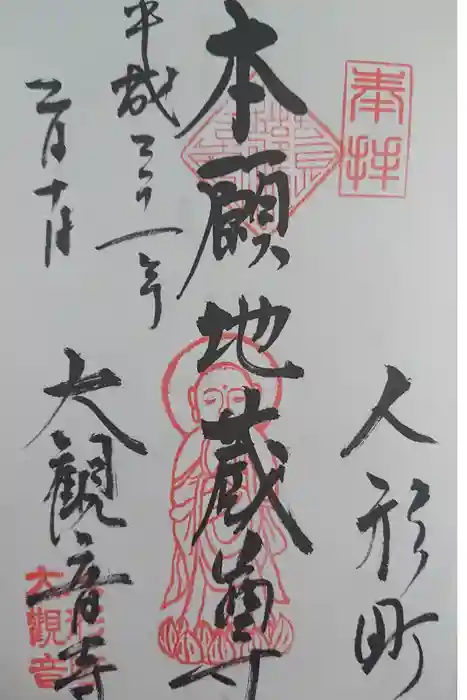 奉拝
人形町
本願地蔵尊
平成三十一年
二月十日
大観音寺
大觀音